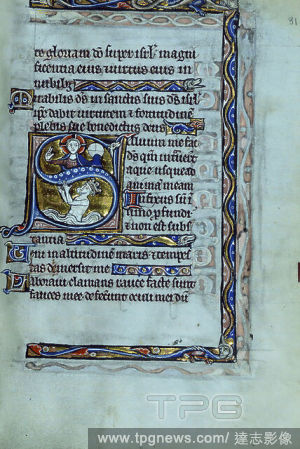 te gloriam dō super isrl̄ magni
ficentia eius uirtus eius in
nubibꝫ
Mirabilis ds̄ in sanctis suis ds̄ isrl̄
ipe dabit uirtutem ⁊ fortitudinē
plebis sue benedictus deus
Saluum me fac
ds̄ qm̄ intrauer
aque usqꝫ ad
animā meam
Infixus sū i
limo pfundi
⁊ non est subs
tantia
Veni in altitudinē maris ⁊ tempes
tas demersit me
Laboraui clamans rauce facte sunt
fauces mee defecerūt oculi mei dum
TPG
www.tpgnews.com/ 達志影像